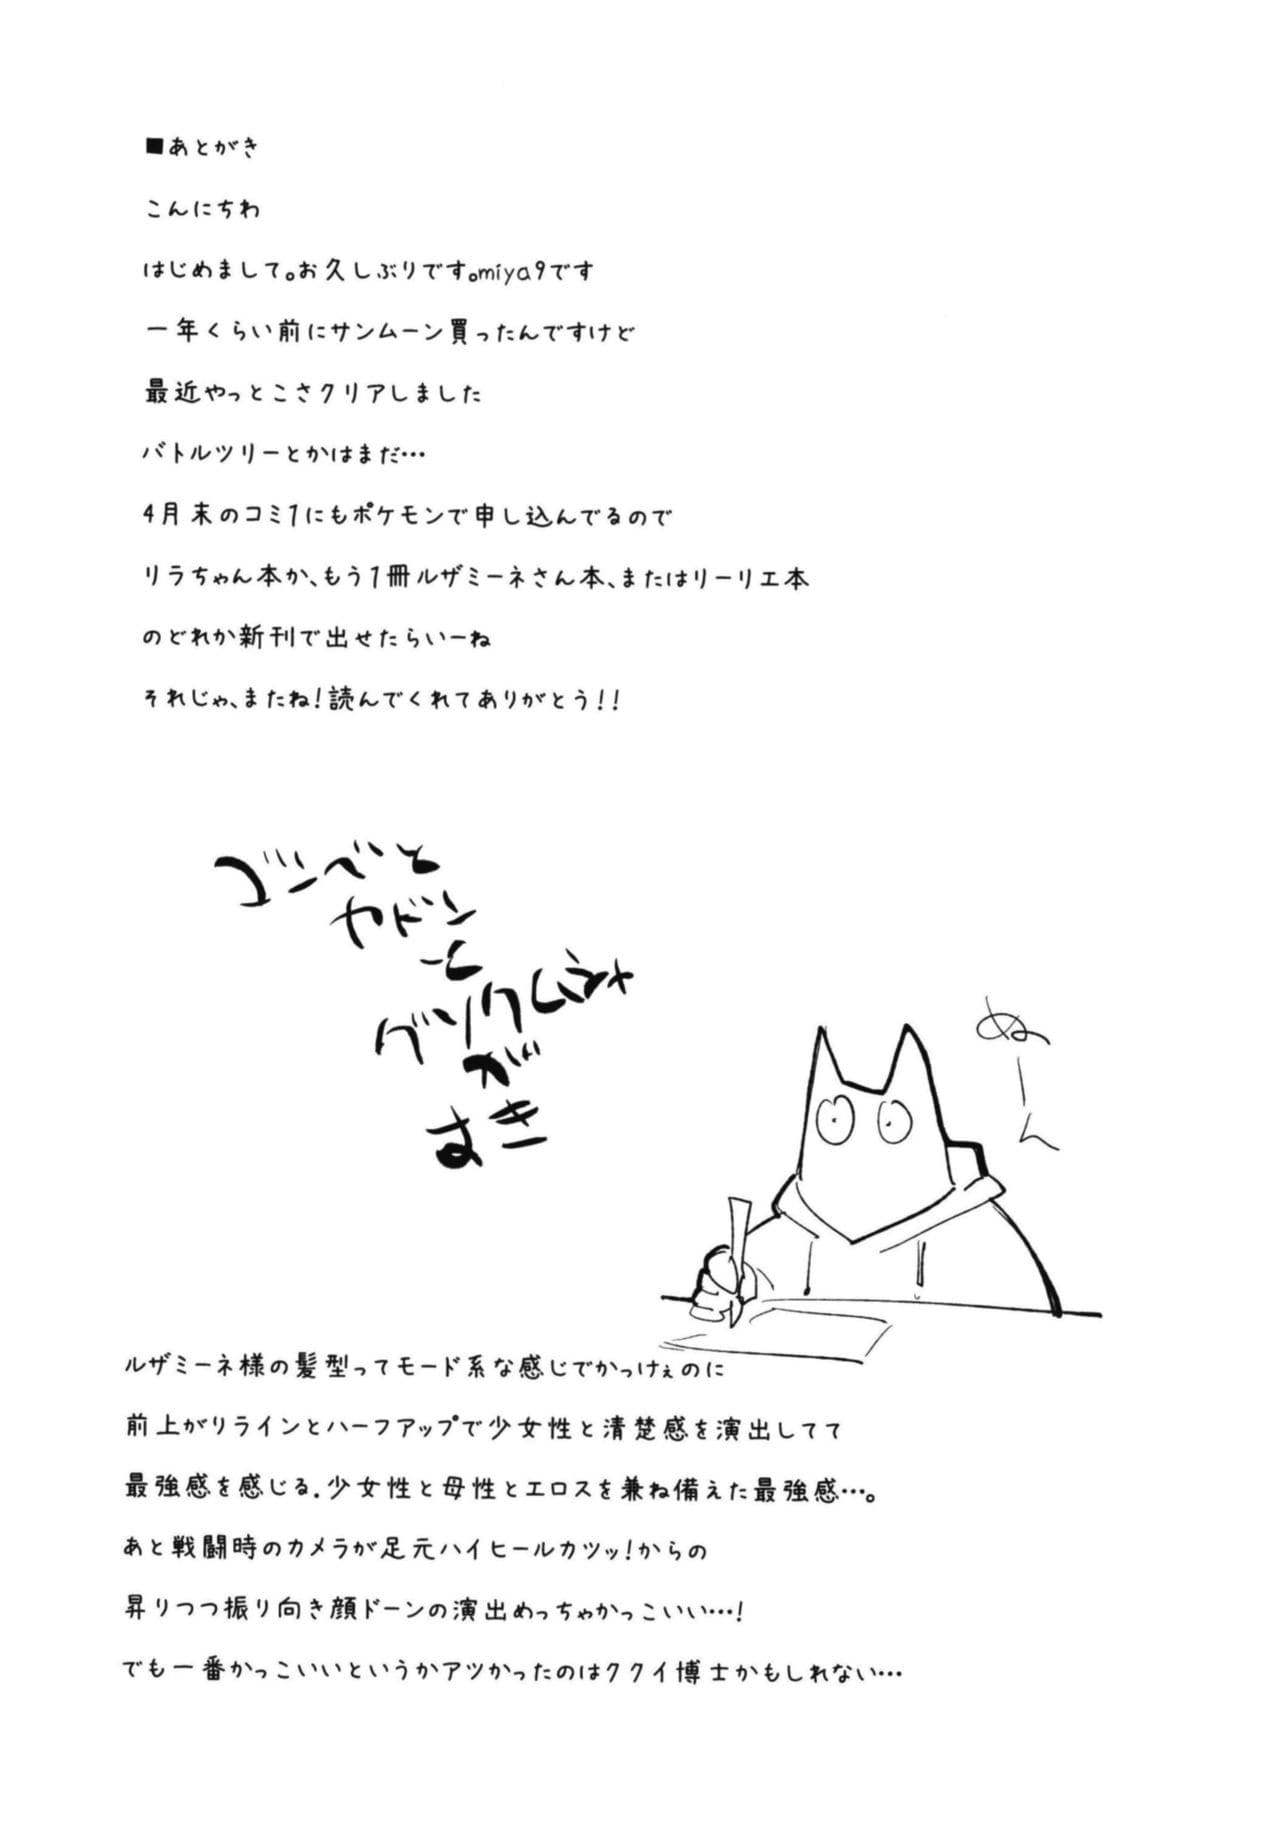 ■あとがき
こんにちわ
はじめまして。お久しぶりです。miya9です
一年くらい前にサンムーン買ったんですけど
最近やっとこさクリアしました
バトルツリーとかはまだ…
4月末のコミ1にもポケモンで申し込んでるので
リラちゃん本か、もう1冊ルザミーネさん本、またはリーリエ本
のどれか新刊で出せたらいーね
それじゃ、またね!読んでくれてありがとう!!
ゴンベと
ヤドン
と
グソクムシャ
が
すき
ぬーん
ルザミーネ様の髪型ってモード系な感じでかっけぇのに
前上がりラインとハーフアップで少女性と清楚感を演出してて
最強感を感じる.少女性と母性とエロスを兼ね備えた最強感…。
あと戦闘時のカメラが足元ハイヒールカツッ!からの
昇りつつ振り向き顔ドーンの演出めっちゃかっこいい…!
でも一番かっこいいというかアツかったのはククイ博士かもしれない…